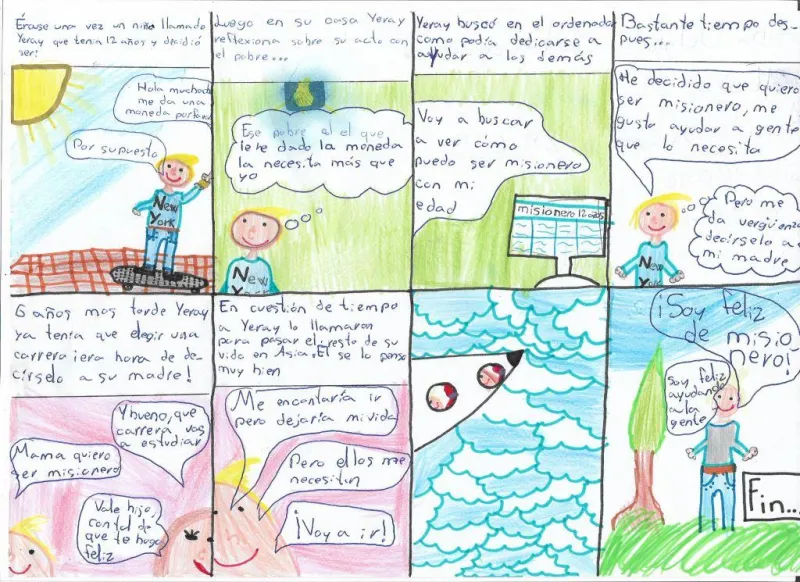 Érase una vez un niño llamado
Yeray que tenia 12 años y decidió
ser!
Hola muchacho
me da una
moneda porfavor
Por supuesto
New
York
Luego en su casa Yeray
reflexiona sobre su acto con
el pobre...
Ese pobre al el que
le he dado la moneda
la necesita más que
yo
New
York
Yeray buscó en el ordenador
como podía dedicarse a
ayudar a los demás
Voy a buscar
a ver cómo
puedo ser misionero
con mi
edad
misionero 12 años
Bastante tiempo des-
pues...
He decidido que quiero
ser misionero, me
gusta ayudar a gente
que lo necesita
Pero me
da vergüenza
decírselo a
mi madre
New
York
6 años mas tarde Yeray
ya tenía que elegir una
carrera ¡era hora de de-
círselo a su madre!
Y bueno, que
carrera vas
a estudiar
Mama quiero
ser misionero
Vale hijo,
con tal de
que te haga
feliz
En cuestión de tiempo
a Yeray lo llamaron
para pasar el resto de su
vida en Asia. Él se lo penso
muy bien
Me encantaría ir
pero dejaría mi vida
Pero ellos me
necesitan
¡Voy a ir!
¡Soy feliz
de misio
nero!
Soy feliz
ayudando
a la
gente
Fin...